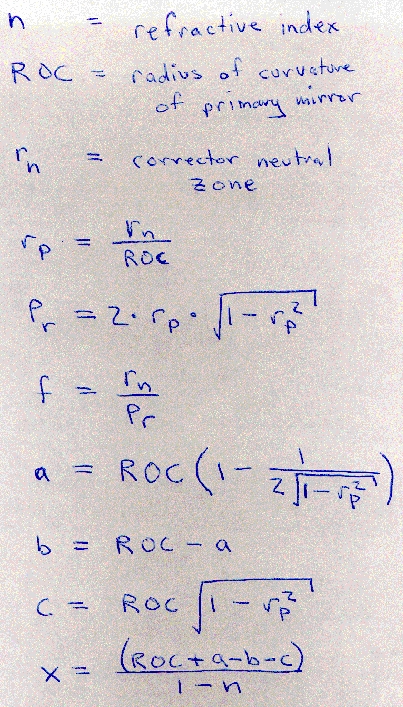 n = refractive index
ROC = radius of curvature
of primary mirror
r_n = corrector neutral
zone
r_p = r_n / ROC
P_r = 2 · r_p · √(1 - r_p²)
f = r_n / P_r
a = ROC (1 - 1 / (2√(1 - r_p²)))
b = ROC - a
c = ROC √(1 - r_p²)
x = (ROC + a - b - c) / (1 - n)